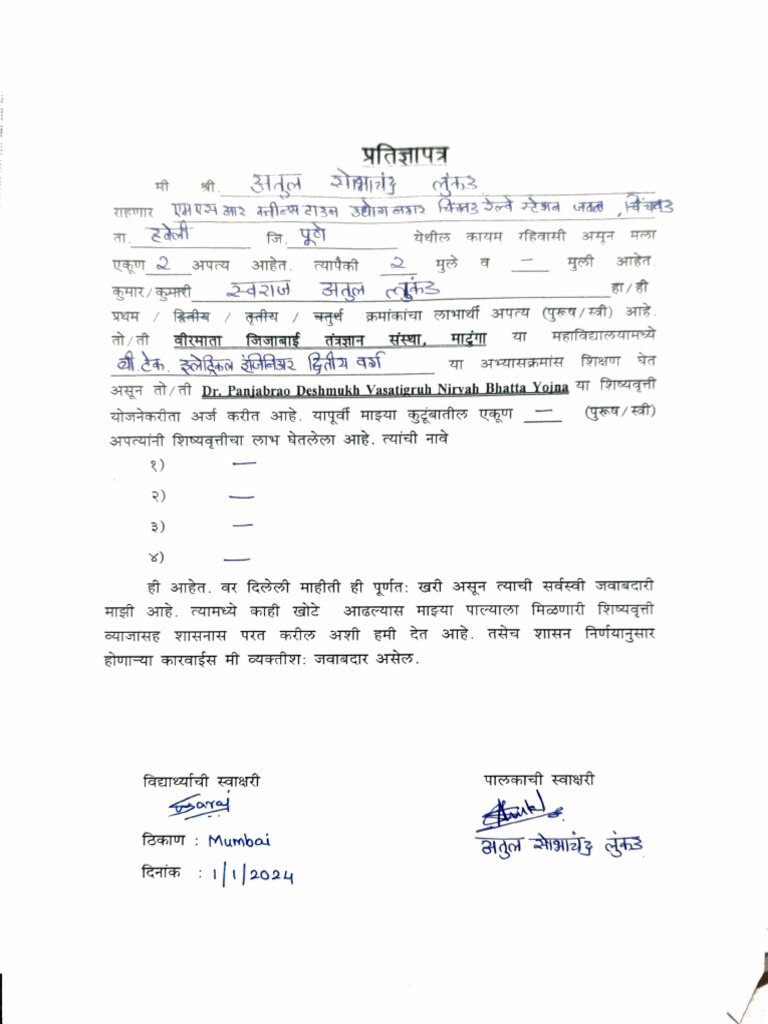 प्रतिज्ञापत्र
मी श्री. अतुल शोभाचंद लुंकड
राहणार एमएसआर क्वीन्स टाउन उद्योग नगर चिंचवड रेल्वे स्टेशन जवळ, चिंचवड
ता. हवेली जि. पूणे येथील कायम रहिवासी असून मला
एकूण २ अपत्य आहेत. त्यापैकी २ मुले व - मुली आहेत.
कुमार/कुमारी स्वराज अतुल लुंकड हा/ही
प्रथम / द्वितीय / तृतीय / चतुर्थ क्रमांकांचा लाभार्थी अपत्य (पुरूष/स्त्री) आहे.
तो/ती वीरमाता जिजाबाई तंत्रज्ञान संस्था, माटुंगा या महाविद्यालयामध्ये
बी.टेक. इलेट्रिकल इंजिनिअर द्वितीय वर्ग या अभ्यासक्रमांस शिक्षण घेत
असून तो/ती Dr. Panjabrao Deshmukh Vasatigruh Nirvah Bhatta Yojna या शिष्यवृत्ती
योजनेकरीता अर्ज करीत आहे. यापूर्वी माझ्या कुटूंबातील एकूण - (पुरूष/स्त्री)
अपत्यांनी शिष्यवृत्तीचा लाभ घेतलेला आहे. त्यांची नावे
१) -
२) -
३) -
४) -
ही आहेत. वर दिलेली माहीती ही पूर्णत: खरी असून त्याची सर्वस्वी जवाबदारी
माझी आहे. त्यामध्ये काही खोटे आढल्यास माझ्या पाल्याला मिळणारी शिष्यवृत्ती
व्याजासह शासनास परत करील अशी हमी देत आहे. तसेच शासन निर्णयानुसार
होणाऱ्या कारवाईस मी व्यक्तीश: जवाबदार असेल.
विद्यार्थ्याची स्वाक्षरी पालकाची स्वाक्षरी
ठिकाण : Mumbai अतुल शोभाचंद लुंकड
दिनांक : 1/1/2024